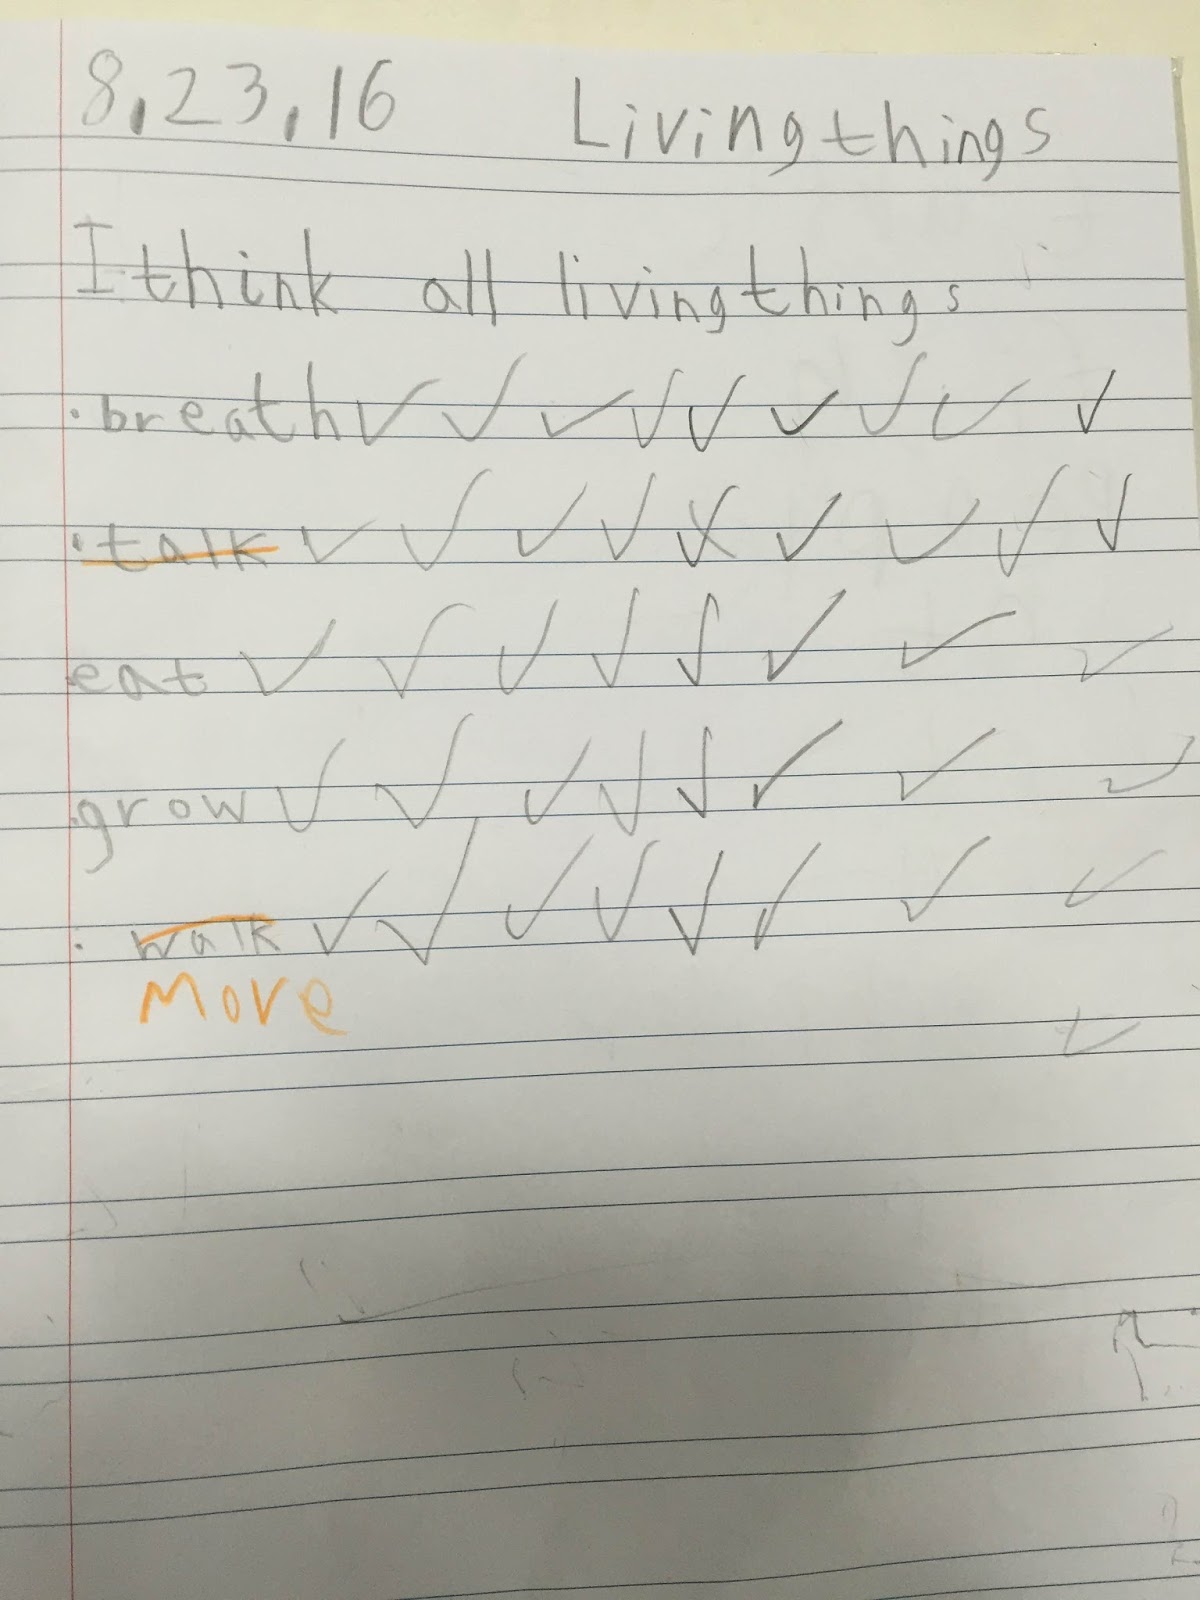 8,23,16 Living things
I think all living things
· breath ✓ ✓ ✓ ✓ ✓ ✓ ✓ ✓ ✓
· talk ✓ ✓ ✓ ✓ ✗ ✓ ✓ ✓ ✓
eat ✓ ✓ ✓ ✓ ✓ ✓ ✓ ✓
·grow ✓ ✓ ✓ ✓ ✓ ✓ ✓ ✓
· walk ✓ ✓ ✓ ✓ ✓ ✓ ✓ ✓
Move
✓